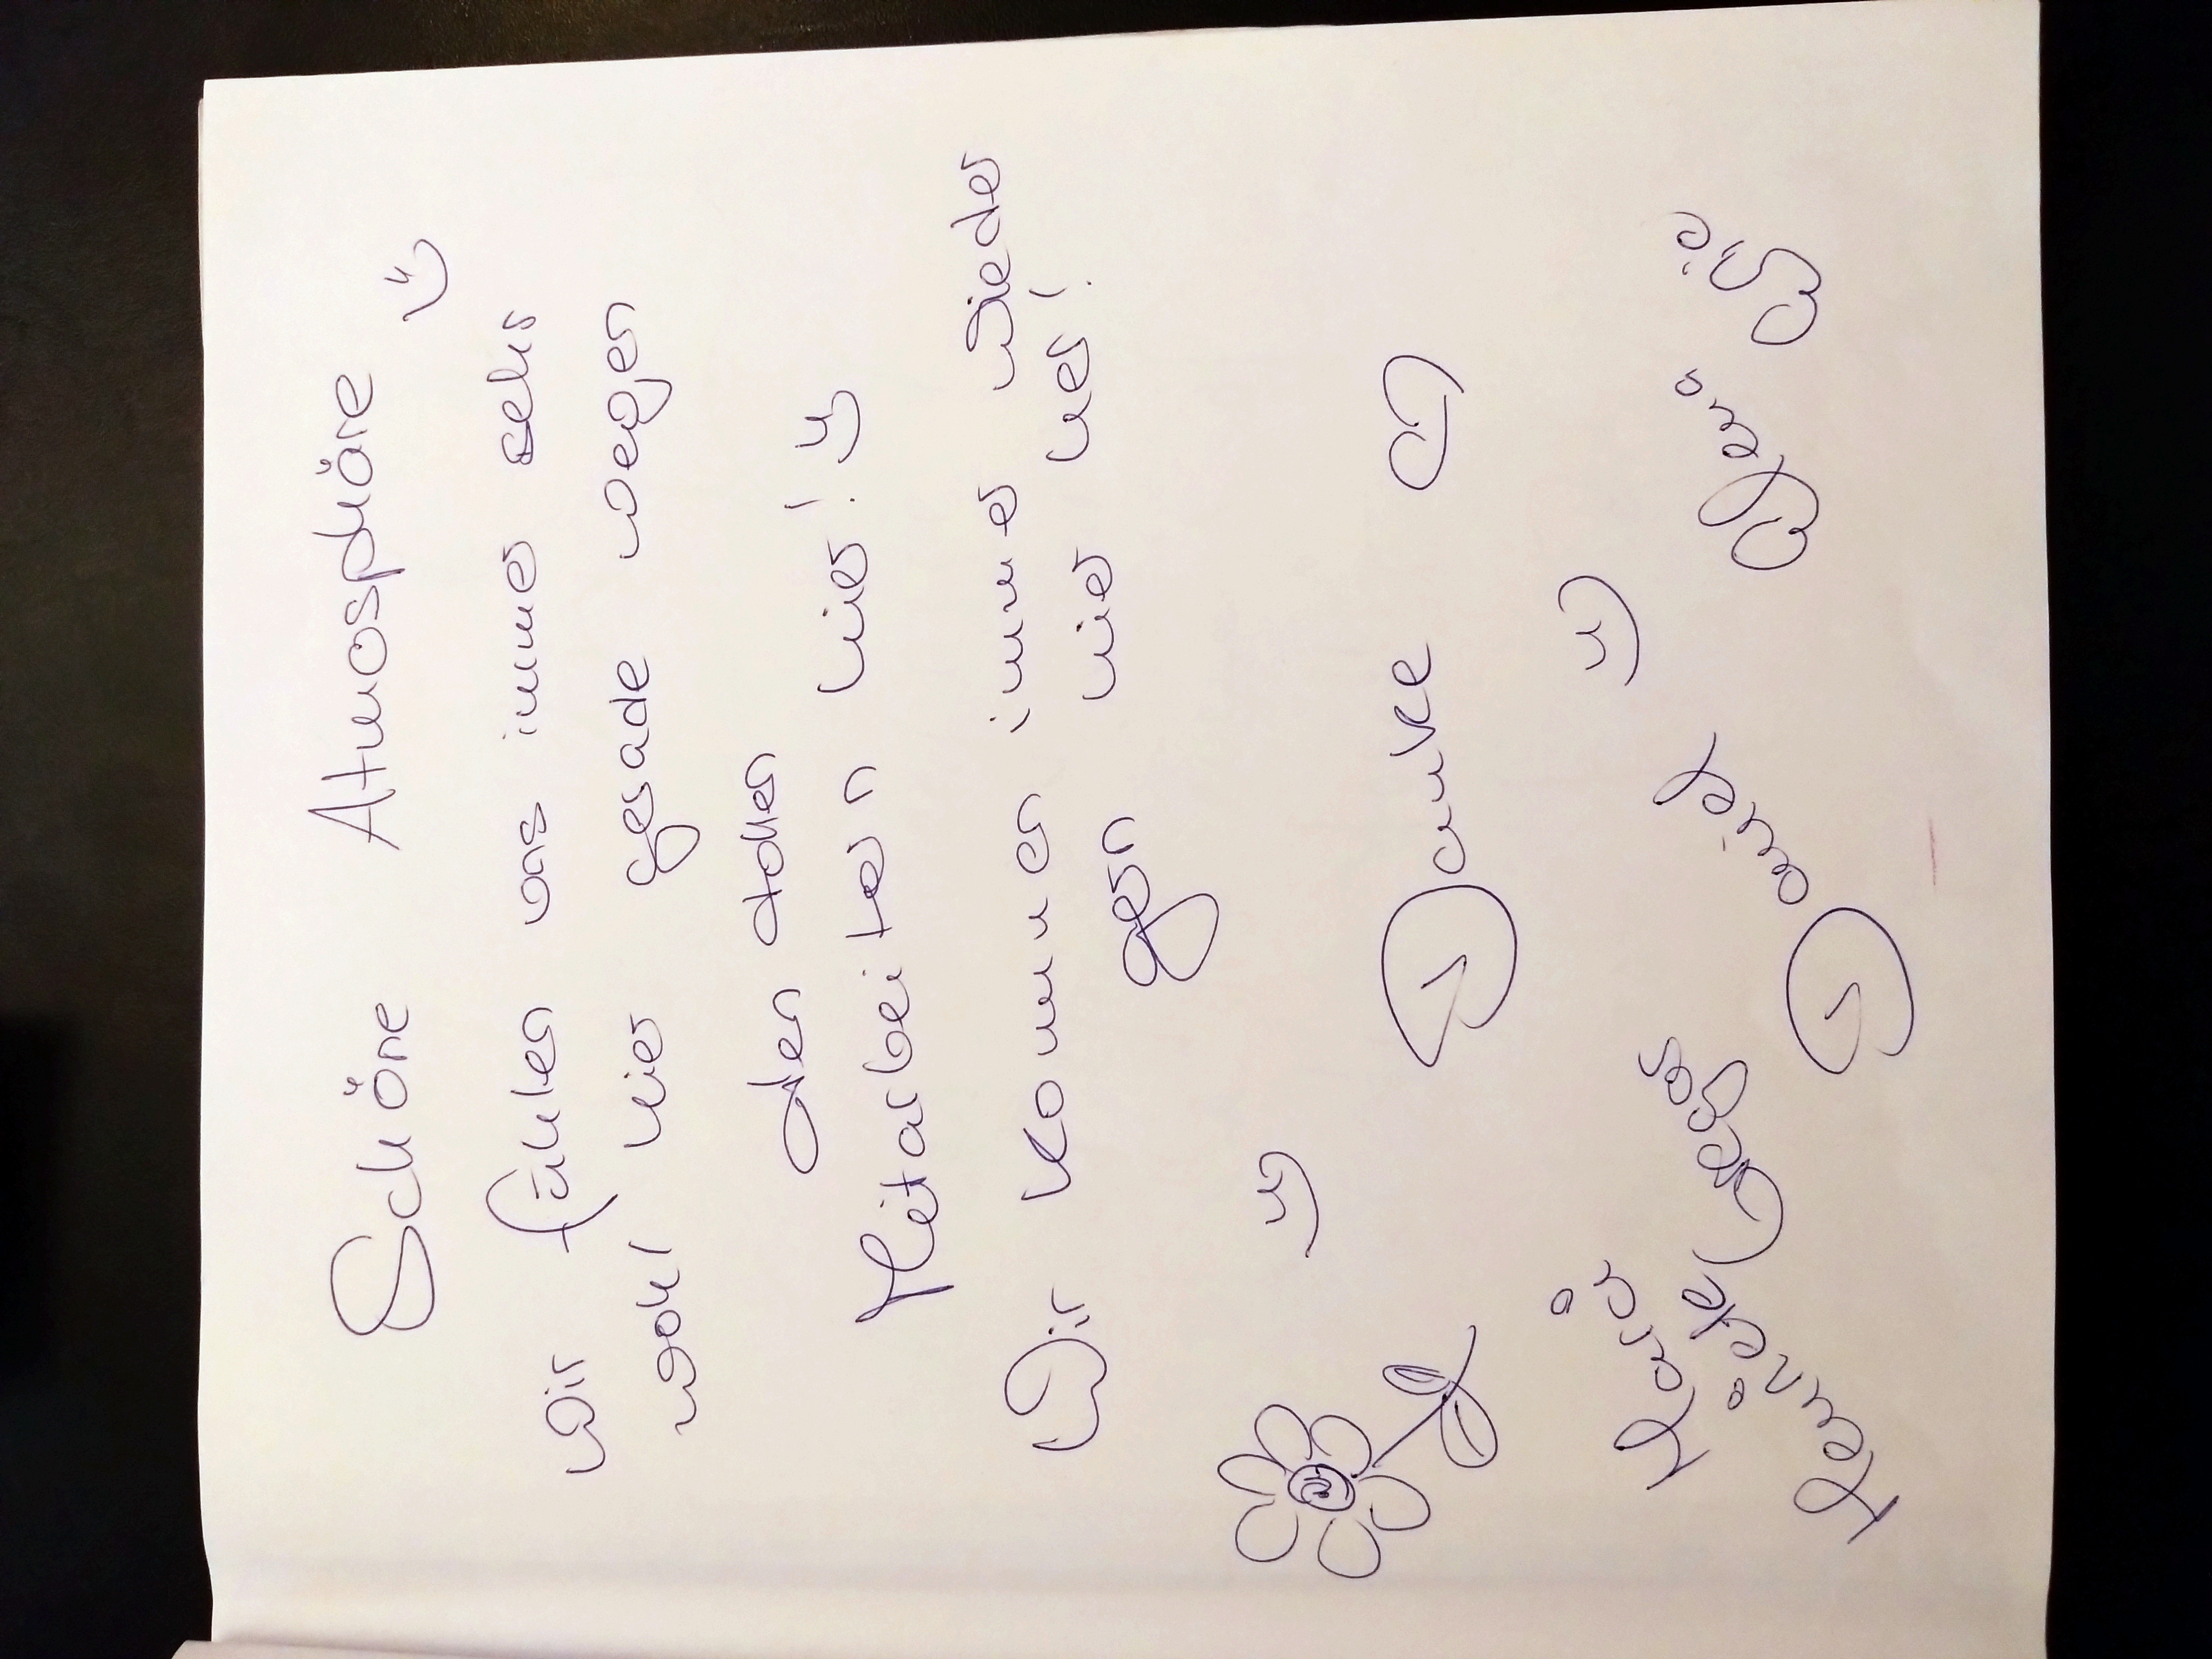 Schöne Atmosphäre
Wir fühlen uns immer sehr
wohl hier gerade wegen
den tollen
Mitarbeitern hier!
Wir kommen immer wieder
gern hier her!
Danke
Daniel